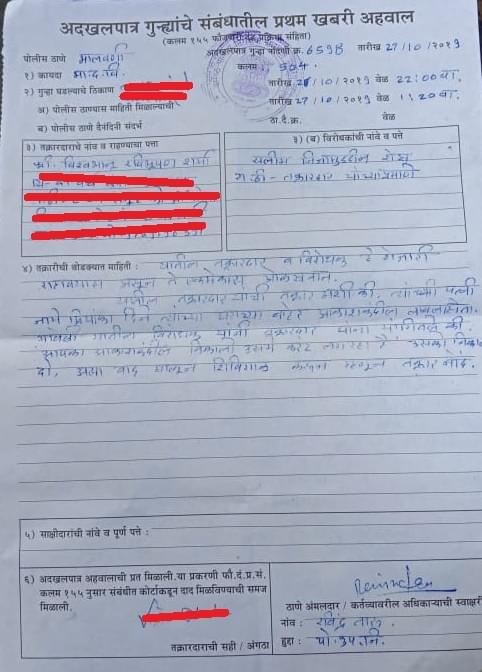 अदखलपात्र गुन्ह्यांचे संबंधातील प्रथम खबरी अहवाल
(कलम १५५ फौजदारी प्रक्रिया संहिता)
पोलीस ठाणे मालवणी अदखलपात्र गुन्हा नोंदणी क्र. 6598 तारीख 27/10/2019
१) कायदा भादवि. कलम 504.
२) गुन्हा घडल्याचे ठिकाण तारीख /10/2019 वेळ 22:00 वा.
अ) पोलीस ठाण्यास माहिती मिळाल्याची तारीख 27/10/2019 वेळ
ब) पोलीस ठाणे दैनंदिनी संदर्भ ठा.दै.क्र. वेळ
३) तक्रारदाराचे नांव व राहण्याचा पत्ता
श्री. विश्वभानू शर्मा
३) (ब) विरोधकांची नांवे व पत्ते
सलीम निजामुद्दीन शेख
रा. ठी - तक्रारदार यांच्याप्रमाणे
४) तक्रारीची थोडक्यात माहिती : यातील तक्रारदार व विरोधक हे शेजारी
राहणयास असून ते एकमेकांस ओळखतात.
तक्रारदार यांची तक्रार अशी की, त्यांच्या पत्नी
नामे प्रियांका हिने त्याच्या घराच्या बाहेर आकाशकंदील लावला होता.
यातील विरोधक यांनी तक्रारदार यांना सांगितले की
आपका आकाशकंदील निकालो उससे करंट लग रहा है उसका
दो, असा वाद घालून शिवीगाळ केली म्हणून तक्रार नोंद.
५) साक्षीदारांची नांवे व पूर्ण पत्ते :
६) अदखलपात्र अहवालाची प्रत मिळाली. या प्रकरणी फौ.दं.प्र.सं.
कलम १५५ नुसार संबंधीत कोर्टाकडून दाद मिळविण्याची समज
मिळाली.
तक्रारदाराची सही / अंगठा
ठाणे अंमलदार / कर्तव्यावरील अधिकाऱ्याची स्वाक्षरी
नांव : रविंद्र
हुद्दा : पो.उप.नि.